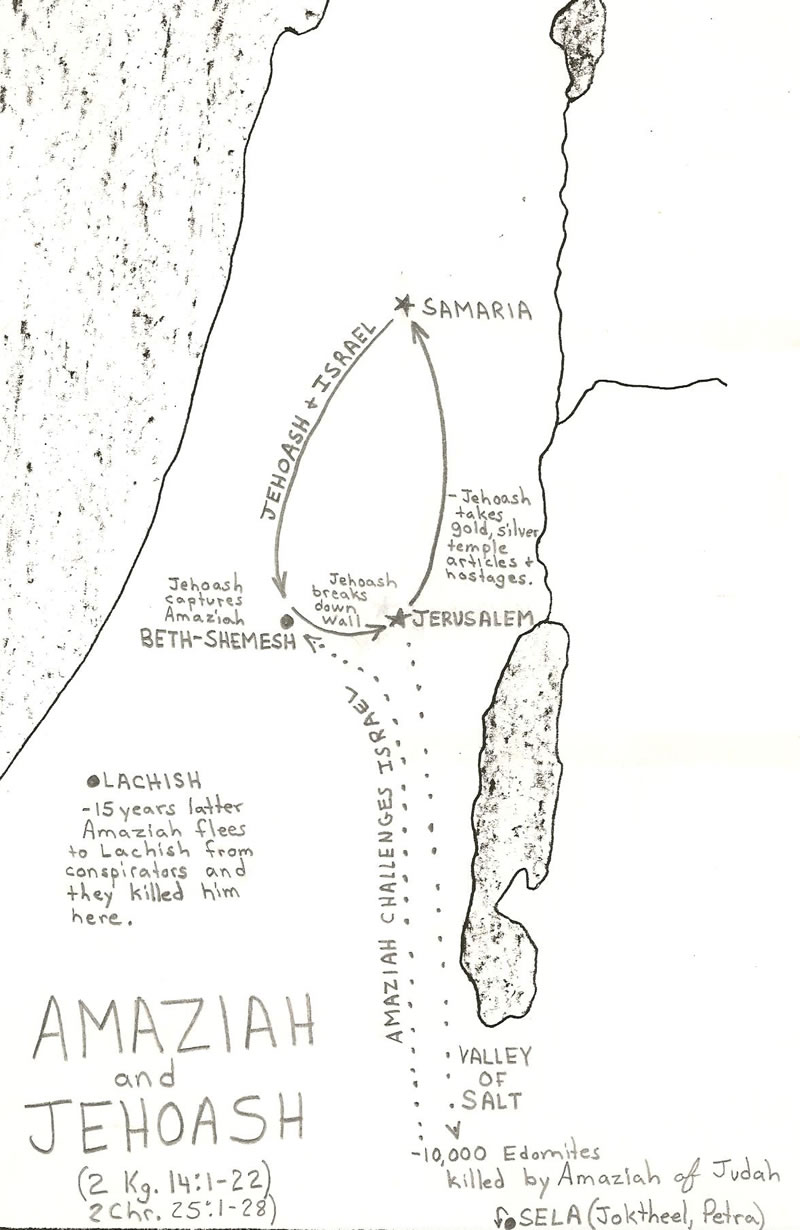 SAMARIA
JEHOASH + ISRAEL
-Jehoash
takes
gold, silver
temple
articles +
hostages.
Jehoash
captures
Amaziah
BETH-SHEMESH
Jehoash
breaks
down
wall
JERUSALEM
AMAZIAH CHALLENGES ISRAEL
LACHISH
-15 years latter
Amaziah flees
to Lachish from
conspirators and
they killed him
here.
AMAZIAH
and
JEHOASH
(2 Kg. 14:1-22)
2 Chr. 25:1-28)
VALLEY
OF
SALT
-10,000 Edomites
killed by Amaziah of Judah
SELA (Joktheel, Petra)